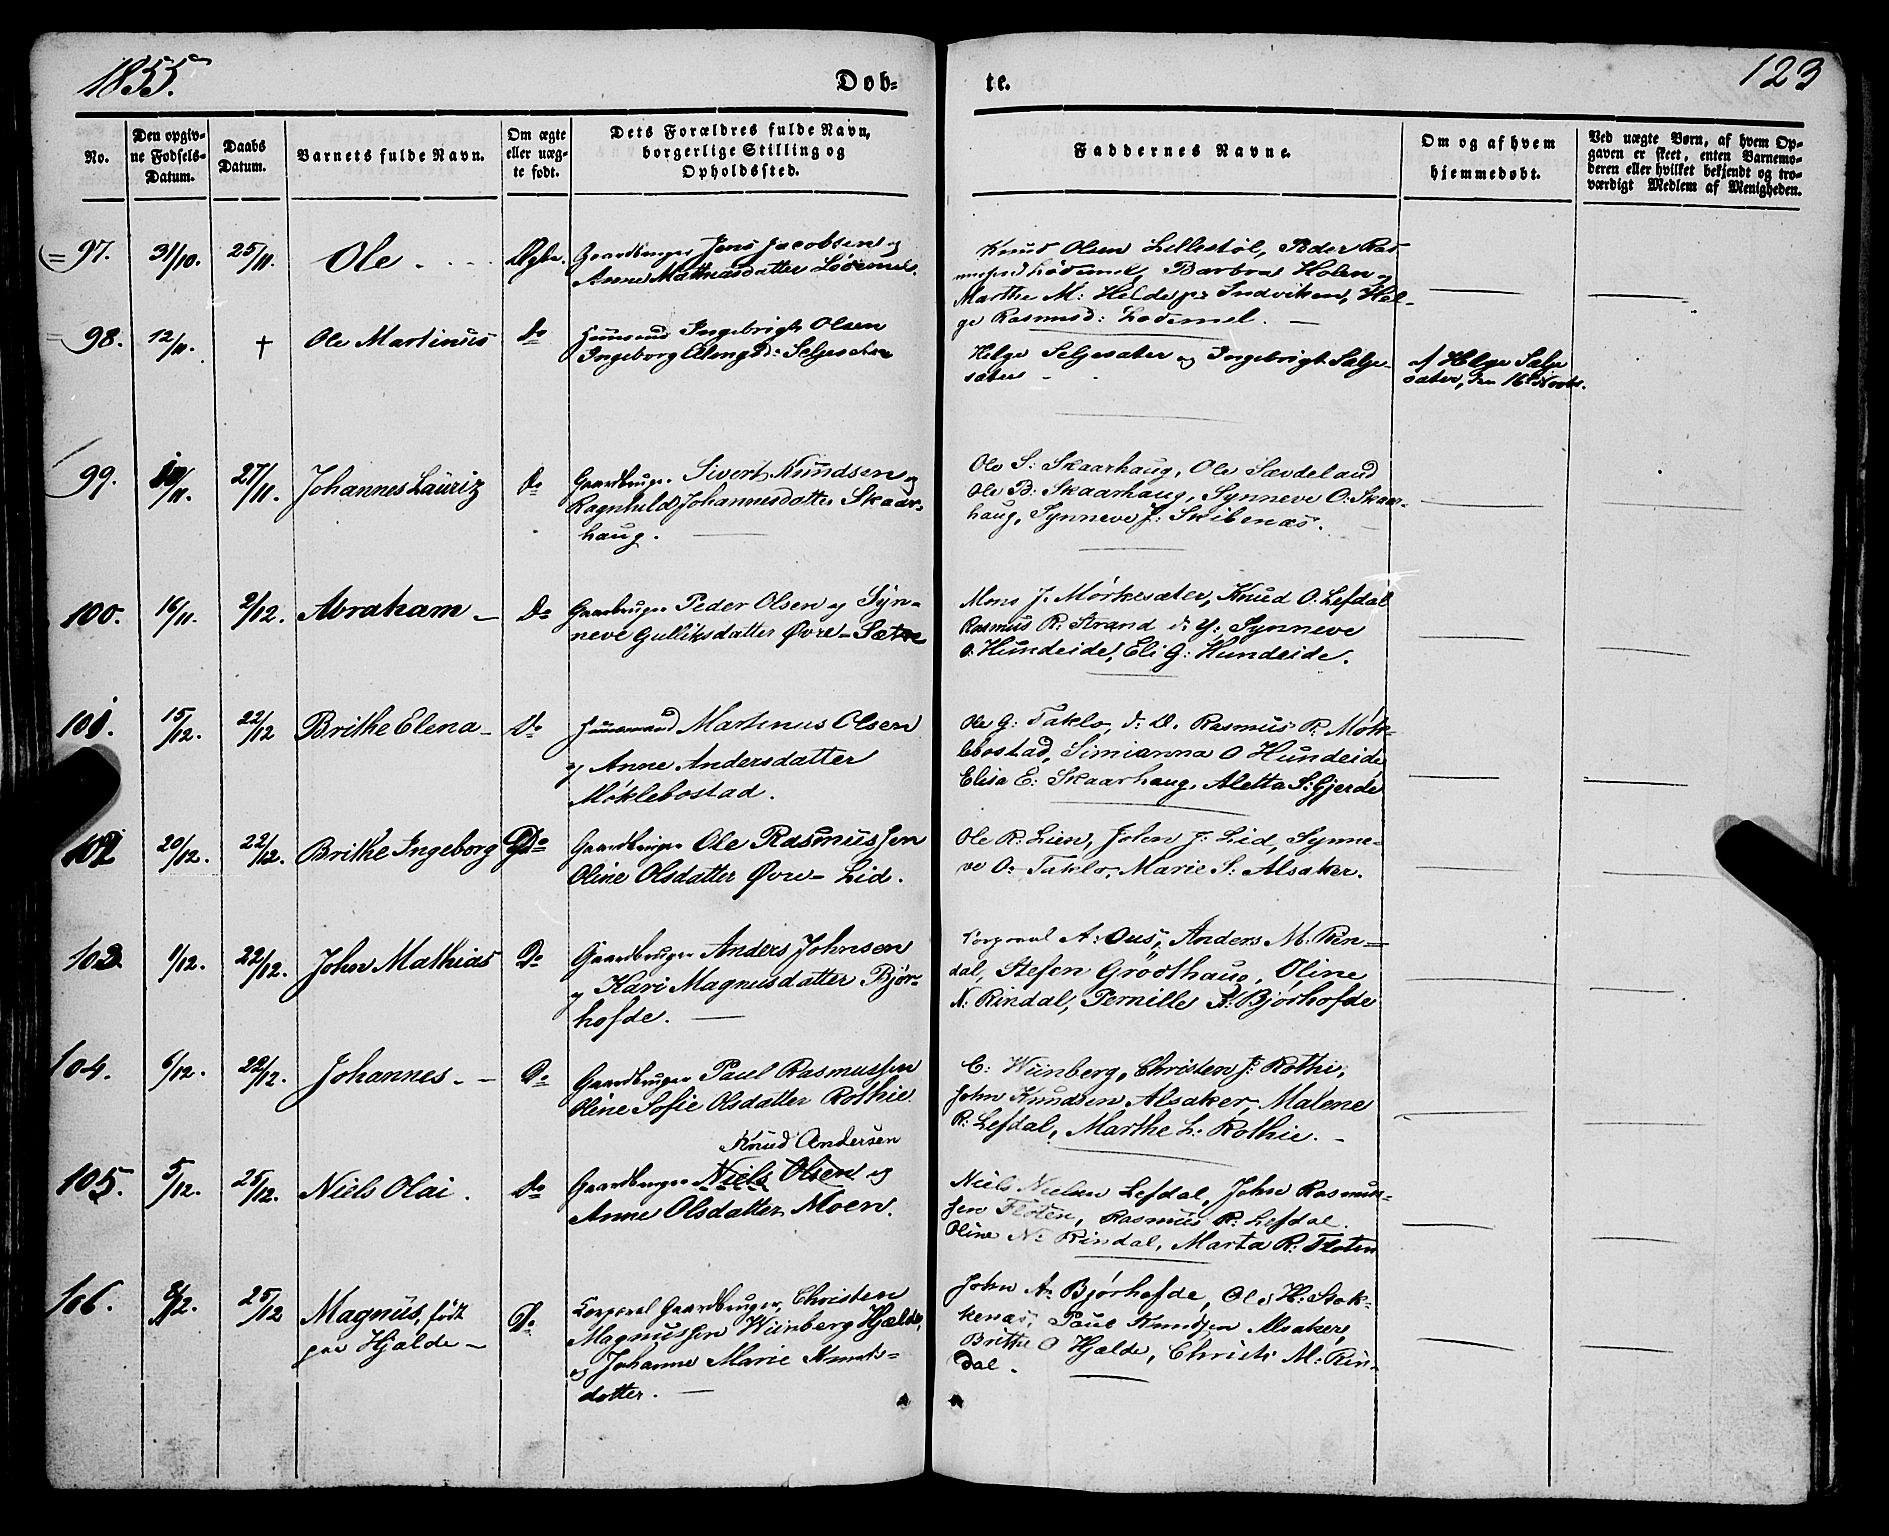 1855.
Døb-
te.
123
No.
Den opgiv-
ne Fødsels-
Datum.
Daabs
Datum.
Barnets fulde Navn.
Om ægte
eller uæg-
te født.
Dets Forældres fulde Navn,
borgerlige Stilling og
Opholdssted.
Faddernes Navne.
Om og af hvem
hjemmedøbt.
Ved uægte Børn, af hvem Op-
gaven er skeet, enten Barnemo-
deren eller hvilket bekjendt og tro-
værdigt Medlem af Menigheden.
97.
31/10.
25/11.
Ole
Ægte.
Gaardbruger Jens Jacobsen og
Anne Mathiasdatter Lødemel.
Knud Olsen Lillestøl, Peder Ras-
Lødemel, Barbra Holen og
Marthe M: Indviken, Hel-
ge Rasmusd: Lødemel.
98.
12/11.
†
Ole Martinus
Do
Huusmand Ingebrigt Olsen
Ingeborg Seljesæter
Helge Seljesæter og Ingebrigt Selje-
sæter
af Helge Selje
sæter, den 16 Novbr.
99.
27/11.
Johannes Lauriz
Do
Gaardbruger Sivert Knudsen og
Ragnhild Johannesdatter Skaar-
haug.
Ole S: Skaarhaug, Ole Sævdeland
Ole B: Skaarhaug, Synneve O: Skaar-
haug, Synneve J: Skibenæs.
100.
16/11.
2/12.
Abraham
Do
Gaardbruger Peder Olsen og Syn-
neve Gulliksdatter Øvre-Sætre
Mons J. Mørkesæter, Knud O. Lefdal
Rasmus R. Strand d. y., Synneve
O: Hundeide, Eli G: Hundeide.
101.
15/12.
22/12
Brithe Elena
Do
Huusmand Martinus Olsen
og Anne Andersdatter
Møklebostad.
Ole G: Taklo, Rasmus R. Møk-
lebostad, Simianna O Hundeide
Elisa E: Skaarhaug, Aletta S: Gjerde
102
20/12.
22/12.
Brithe Ingeborg
Do
Gaardbruger Ole Rasmussen
Oline Olsdatter Øvre-Lid.
Ole R: Lien, John J: Lid, Synne-
ve O: Taklo, Marie S: Alsaker.
103.
1/12.
22/12.
John Mathias
Do
Gaardbruger Anders Johnsen
og Kari Magnusdatter Bjør-
hofde.
Corporal A: Ous, Anders M: Rin-
dal, Stefen Grodthaug, Oline
N: Rindal, Pernille Bjørhofde
104.
6/12.
22/12.
Johannes
Do
Gaardbruger Paul Rasmussen
Oline Sofie Olsdatter Rothie
C: Wiinberg, Christen J: Rothi,
John Knudsen Alsaker, Malene
R: Lefdal, Marthe L: Rothie.
105.
5/12.
25/12.
Niels Olai.
Do
Knud Andersen
Gaardbruger Niels Olsen og
Anne Olsdatter Moen.
Niels Nielsen Lefdal, John Rasmus-
sen Floten, Rasmus R: Lefdal.
Oline N: Rindal, Marta R: Floten
106.
25/12
Magnus, født
paa Hjalde
Do
Corporal Gaardbruger, Christen
Magnussen Wiinberg Hjælde,
og Johanne Marie Knuds-
datter.
John A: Bjørhofde, Ole H: Stok-
kenæs, Paul Knudsen Alsaker,
Britha O Hjælde, Christi M: Rin-
dal.